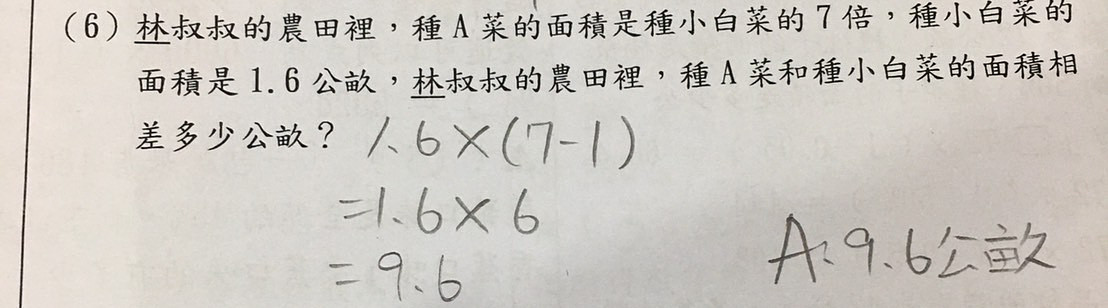 (6)林叔叔的農田裡，種A菜的面積是種小白菜的7倍，種小白菜的
面積是1.6公畝，林叔叔的農田裡，種A菜和種小白菜的面積相
差多少公畝？ 1.6×(7-1)
=1.6×6
=9.6
A:9.6公畝